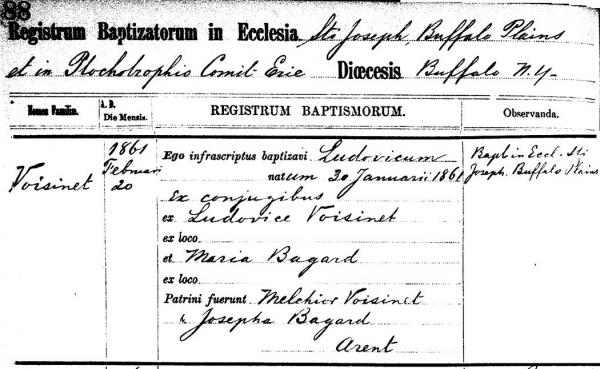 88
Registrum Baptizatorum in Ecclesia Sti Joseph, Buffalo Plains
et in Ptochotrophio Comit. Erie Diœcesis Buffalo N.Y-
Nomen Familiæ. A. D. Die Mensis. REGISTRUM BAPTISMORUM. Observanda.
Voisinet
1861
Februari
20
Ego infrascriptus baptizavi Ludovicum
natum 30 Januarii 1861
Ex conjugibus
ex Ludovice Voisinet
ex loco
et Maria Bagard
ex loco
Patrini fuerunt Melchior Voisinet
& Josepha Bagard
Arent
Bapt in Eccl. Sti
Joseph. Buffalo Plains